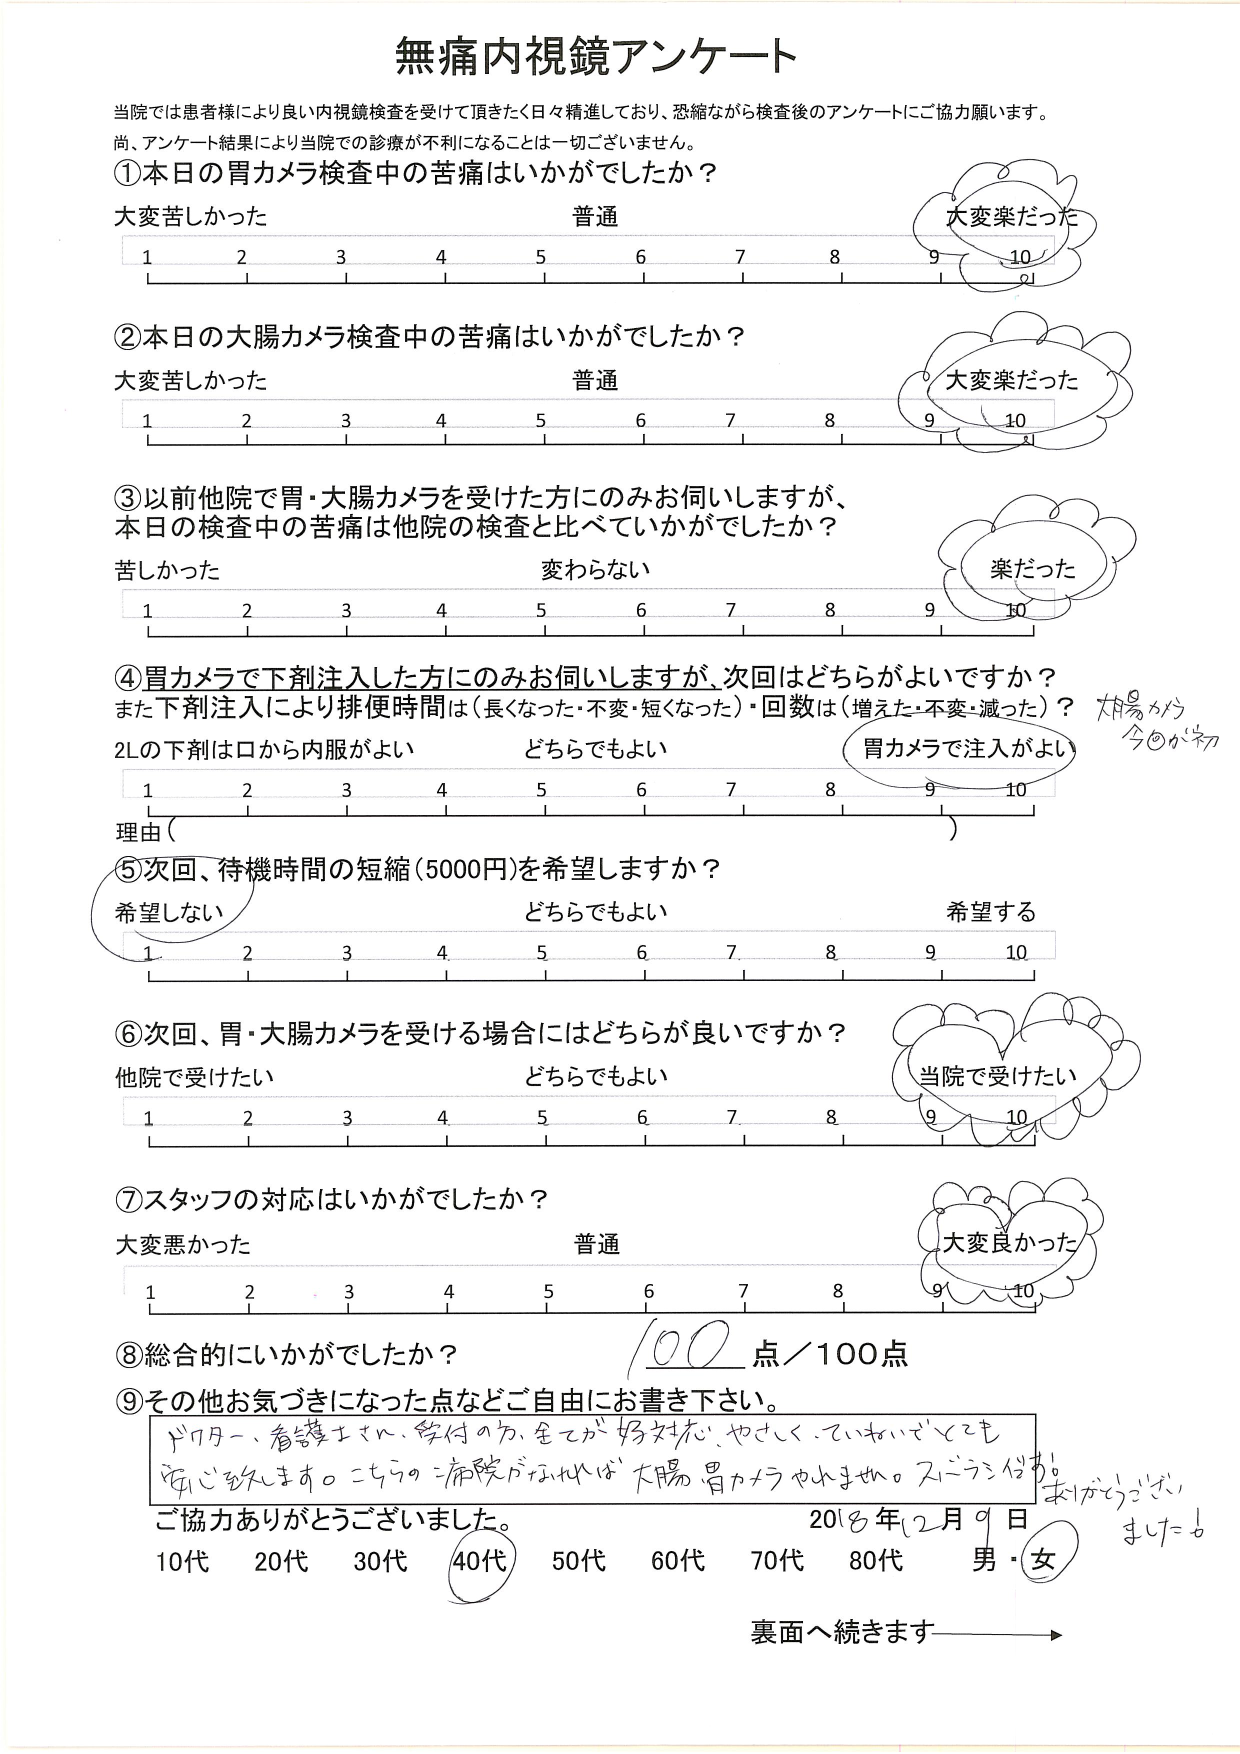 無痛内視鏡アンケート
当院では患者様により良い内視鏡検査を受けて頂きたく日々精進しており、恐縮ながら検査後のアンケートにご協力願います。
尚、アンケート結果により当院での診療が不利になることは一切ございません。
①本日の胃カメラ検査中の苦痛はいかがでしたか？
大変苦しかった 普通 大変楽だった
1 2 3 4 5 6 7 8 9 10
②本日の大腸カメラ検査中の苦痛はいかがでしたか？
大変苦しかった 普通 大変楽だった
1 2 3 4 5 6 7 8 9 10
③以前他院で胃・大腸カメラを受けた方にのみお伺いしますが、
本日の検査中の苦痛は他院の検査と比べていかがでしたか？
苦しかった 変わらない 楽だった
1 2 3 4 5 6 7 8 9 10
④胃カメラで下剤注入した方にのみお伺いしますが、次回はどちらがよいですか？
また下剤注入により排便時間は（長くなった・不変・短くなった）・回数は（増えた・不変・減った）？
大腸カメラ
今回が初
2Lの下剤は口から内服がよい どちらでもよい 胃カメラで注入がよい
1 2 3 4 5 6 7 8 9 10
理由（ ）
⑤次回、待機時間の短縮（5000円）を希望しますか？
希望しない どちらでもよい 希望する
1 2 3 4 5 6 7 8 9 10
⑥次回、胃・大腸カメラを受ける場合にはどちらが良いですか？
他院で受けたい どちらでもよい 当院で受けたい
1 2 3 4 5 6 7 8 9 10
⑦スタッフの対応はいかがでしたか？
大変悪かった 普通 大変良かった
1 2 3 4 5 6 7 8 9 10
⑧総合的にいかがでしたか？ 100 点／100点
⑨その他お気づきになった点などご自由にお書き下さい。
ドクター、看護士さん、受付の方、全てが好対応、やさしく、ていねいでとても
安心致します。こちらの病院がなければ 大腸 胃カメラやれません。スバラシイです。
ありがとうござい
ました！
ご協力ありがとうございました。 2018年12月9日
10代 20代 30代 40代 50代 60代 70代 80代 男・女
裏面へ続きます